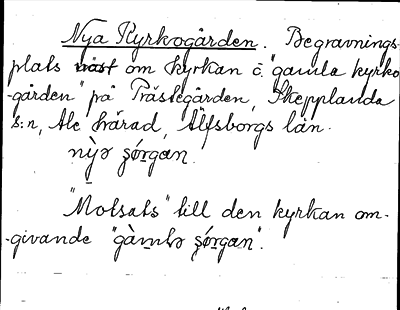 Nya Kyrkogården. Begravnings-
plats väst om kyrkan o. "gamla kyrko
-gården" på Prästegården, Skepplanda
s:n, Ale härad, Älfsborgs län.
nỳə ʂórgan.
"Motsats" till den kyrkan om-
-givande "gàmlə ʂórgan".